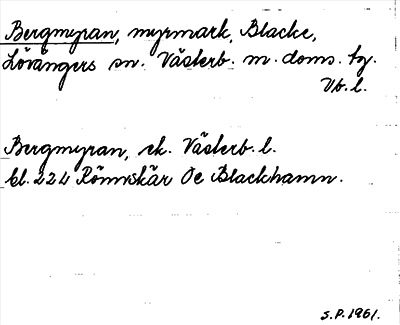 Bergmyran, myrmark, Blacke,
Lövångers sn. Västerb. m. doms. tg.
Vb. l.
Bergmyran, ek. Västerb. l.
bl. 224 Rönnskär Oc Blackhamn.
S.P. 1961.